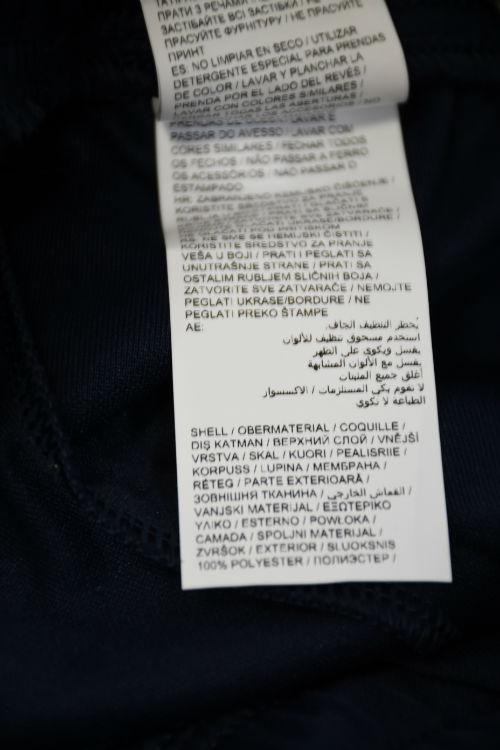 ПРАТИ З РЕЧАМИ
ЗАСТІБАЙТЕ ВСІ ЗАСТІБКИ / НЕ
ПРАСУЙТЕ ФУРНІТУРУ / НЕ ПРАСУЙТЕ
ПРИНТ
ES: NO LIMPIAR EN SECO / UTILIZAR
DETERGENTE ESPECIAL PARA PRENDAS
DE COLOR / LAVAR Y PLANCHAR LA
PRENDA POR EL LADO DEL REVÉS /
LAVAR CON COLORES SIMILARES /
PASSAR DO AVESSO / LAVAR COM
CORES SIMILARES / FECHAR TODOS
OS FECHOS / NÃO PASSAR A FERRO
OS ACESSÓRIOS / NÃO PASSAR O
ESTAMPADO
HR: ZABRANJENO KEMIJSKO ČIŠĆENJE /
RS: NE SME SE HEMIJSKI ČISTITI /
KORISTITE SREDSTVO ZA PRANJE
VEŠA U BOJI / PRATI I PEGLATI SA
UNUTRAŠNJE STRANE / PRATI SA
OSTALIM RUBLJEM SLIČNIH BOJA /
ZATVORITE SVE ZATVARAČE / NEMOJTE
PEGLATI UKRASE/BORDURE / NE
PEGLATI PREKO ŠTAMPE
AE: يُحظر التنظيف الجاف.
استخدم مسحوق تنظيف للألوان
يغسل ويكوى على الظهر
يغسل مع الألوان المشابهة
أغلق جميع المثبتات
لا تقوم بكي المستلزمات / الاكسسوار
الطباعة لا تكوي
SHELL / OBERMATERIAL / COQUILLE /
DIŞ KATMAN / ВЕРХНИЙ СЛОЙ / VNĚJŠÍ
VRSTVA / SKAL / KUORI / PEALISRIIE /
KORPUSS / LUPINA / МЕМБРАНА /
RÉTEG / PARTE EXTERIOARĂ /
ЗОВНІШНЯ ТКАНИНА / القماش الخارجي /
VANJSKI MATERIJAL / ΕΞΩΤΕΡΙΚΟ
ΥΛΙΚΟ / ESTERNO / POWŁOKA /
CAMADA / SPOLJNI MATERIJAL /
ZVRŠOK / EXTERIOR / SLUOKSNIS
100% POLYESTER / ПОЛИЭСТЕР /